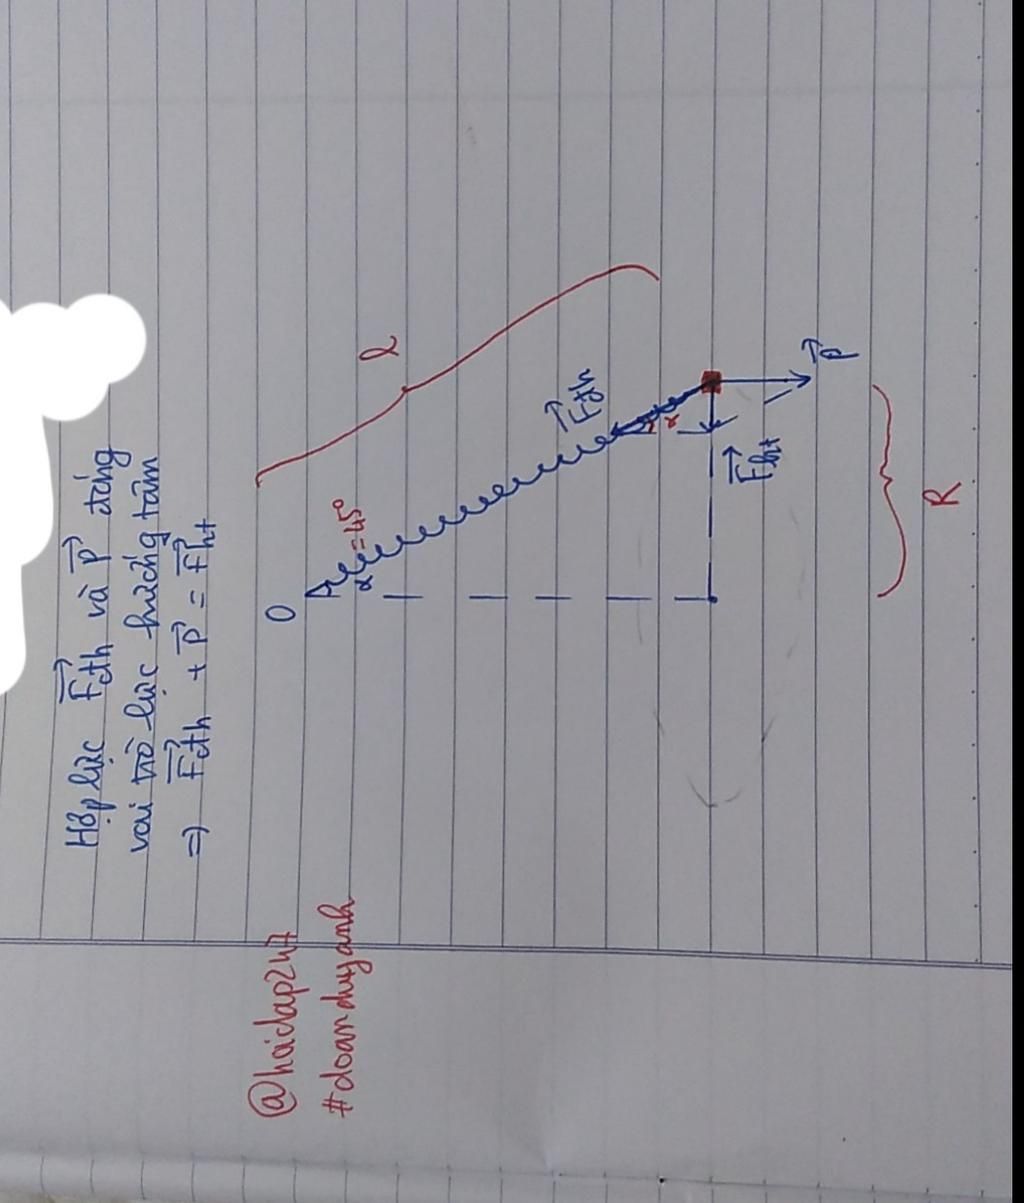 Hợp lực F⃗đh và P⃗ đóng
vai trò lực hướng tâm
=> F⃗đh + P⃗ = F⃗ht
@hoidap247
#doanduyanh
O
α=45°
l
F⃗đh
α
F⃗ht
P⃗
R